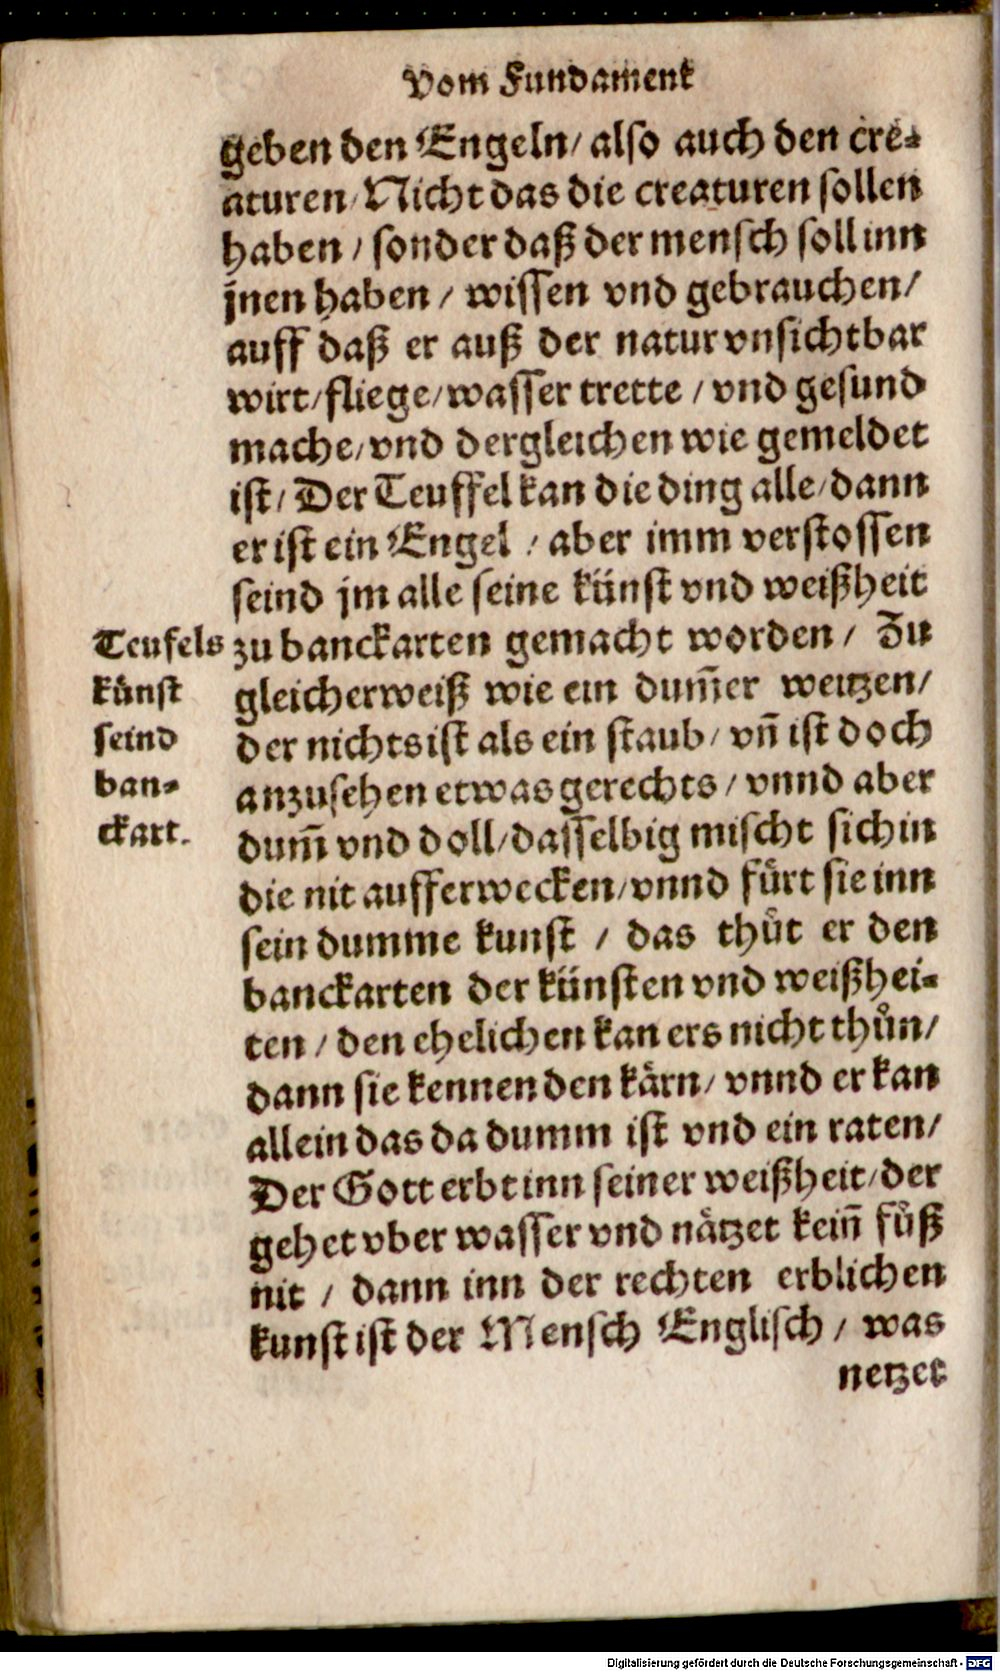 Vom Fundament
geben den Engeln/ also auch den cre-
aturen/ Nicht das die creaturen sollen
haben / sonder daß der mensch soll inn
jnen haben / wissen vnd gebrauchen/
auff daß er auß der natur vnsichtbar
wirt/ fliege/ wasser trette / vnd gesund
mache/ vnd dergleichen wie gemeldet
ist/ Der Teuffel kan die ding alle/ dann
er ist ein Engel / aber imm verstossen
seind jm alle seine künst vnd weißheit
zu banckarten gemacht worden / Zu
gleicherweiß wie ein dum̄er weitzen/
der nichts ist als ein staub/ vn̄ ist doch
anzusehen etwas gerechts / vnnd aber
dum̄ vnd doll/ dasselbig mischt sich in
die nit aufferwecken/ vnnd fürt sie inn
sein dumme kunst / das thůt er den
banckarten der künsten vnd weißhei-
ten / den ehelichen kan ers nicht thůn/
dann sie kennen den kärn/ vnnd er kan
allein das da dumm ist vnd ein raten/
Der Gott erbt inn seiner weißheit/ der
gehet vber wasser vnd nätzet kein̄ fůß
nit / dann inn der rechten erblichen
kunst ist der Mensch Englisch / was
netzet
Teufels
künst
seind
ban-
ckart.
Digitalisierung gefördert durch die Deutsche Forschungsgemeinschaft - DFG